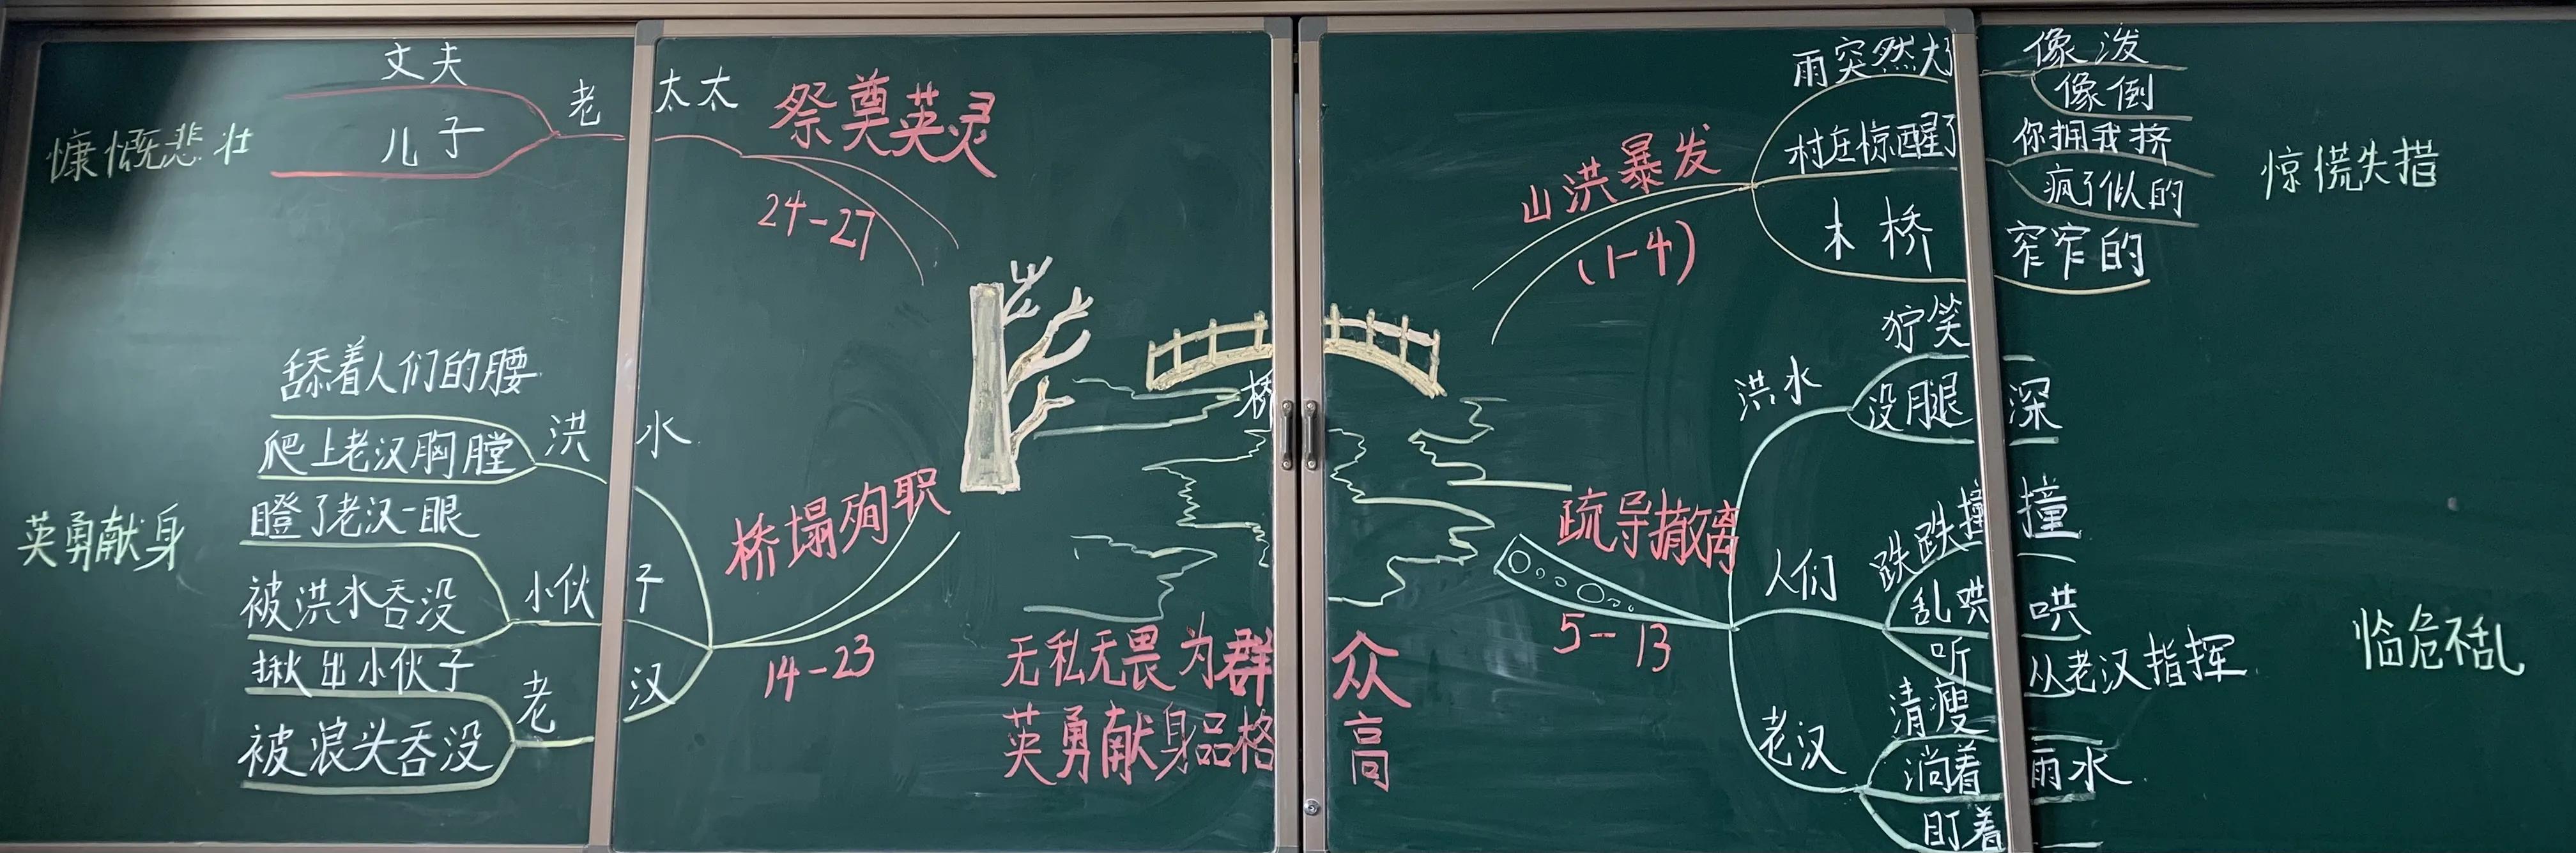 丈夫
儿子
老太太
祭奠英灵
24-27
慷慨悲壮
舔着人们的腰
爬上老汉胸膛
洪水
瞪了老汉一眼
被洪水吞没
小伙子
揪出小伙子
被浪头吞没
老汉
桥塌殉职
14-23
英勇献身
桥
无私无畏为群众
英勇献身品格高
山洪暴发
(1-4)
雨突然大
像泼
像倒
村庄惊醒了
你拥我挤
疯了似的
木桥
窄窄的
惊慌失措
疏导撤离
5-13
洪水
狞笑
没腿深
人们
跌跌撞撞
乱哄哄
听从老汉指挥
老汉
清瘦
淌着雨水
盯着
临危不乱